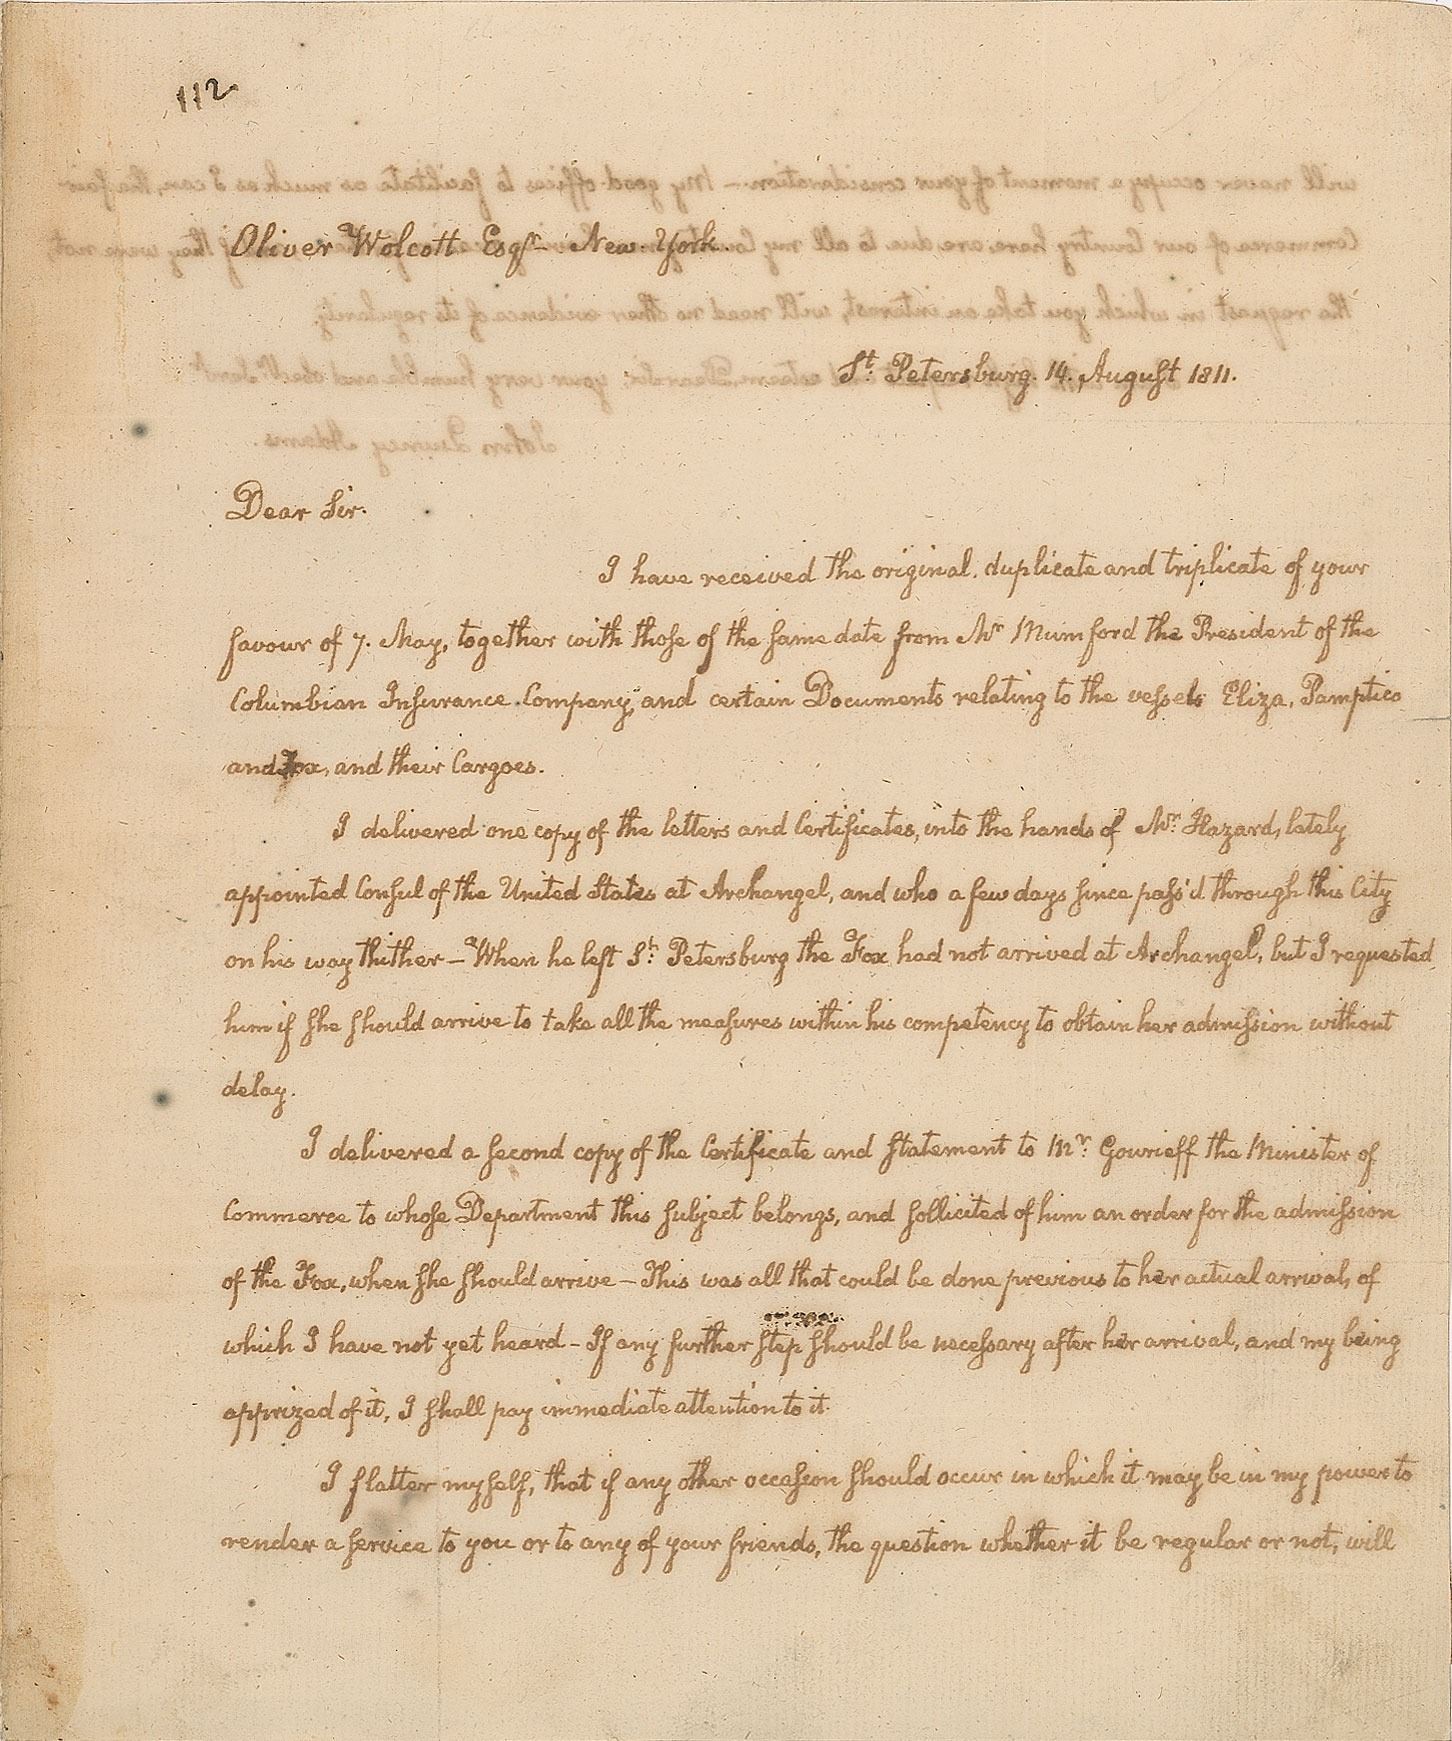 112
Oliver Wolcott Esqr. New-York.
St. Petersburg. 14. August 1811.
Dear Sir.
I have received the original, duplicate and triplicate of your
favour of 7. May, together with those of the same date from Mr Mumford the President of the
Columbian Insurance Company, and certain Documents relating to the vessels Eliza, Pamptico
and Fox, and their Cargoes.
I delivered one copy of the letters and Certificates, into the hands of Mr. Hazard, lately
appointed Consul of the United States at Archangel, and who a few days since pass'd through this City
on his way thither — When he left St. Petersburg the Fox had not arrived at Archangel, but I requested
him if she should arrive to take all the measures within his competency to obtain her admission without
delay.
I delivered a second copy of the Certificate and Statement to Mr. Gourieff the Minister of
Commerce to whose Department this subject belongs, and sollicited of him an order for the admission
of the Fox, when she should arrive — This was all that could be done previous to her actual arrival, of
which I have not yet heard — If any further step should be necessary after her arrival, and my being
apprized of it, I shall pay immediate attention to it.
I flatter myself, that if any other occasion should occur in which it may be in my power to
render a service to you or to any of your friends, the question whether it be regular or not, will
will never occupy a moment of your consideration. — My good offices to facilitate as much as I can, the fair
Commerce of our Country here, are due to all my they were not,
the request in which you take an interest, will need no other evidence of its regularity.
your very humble and obedt. Servt.
John Quincy Adams.